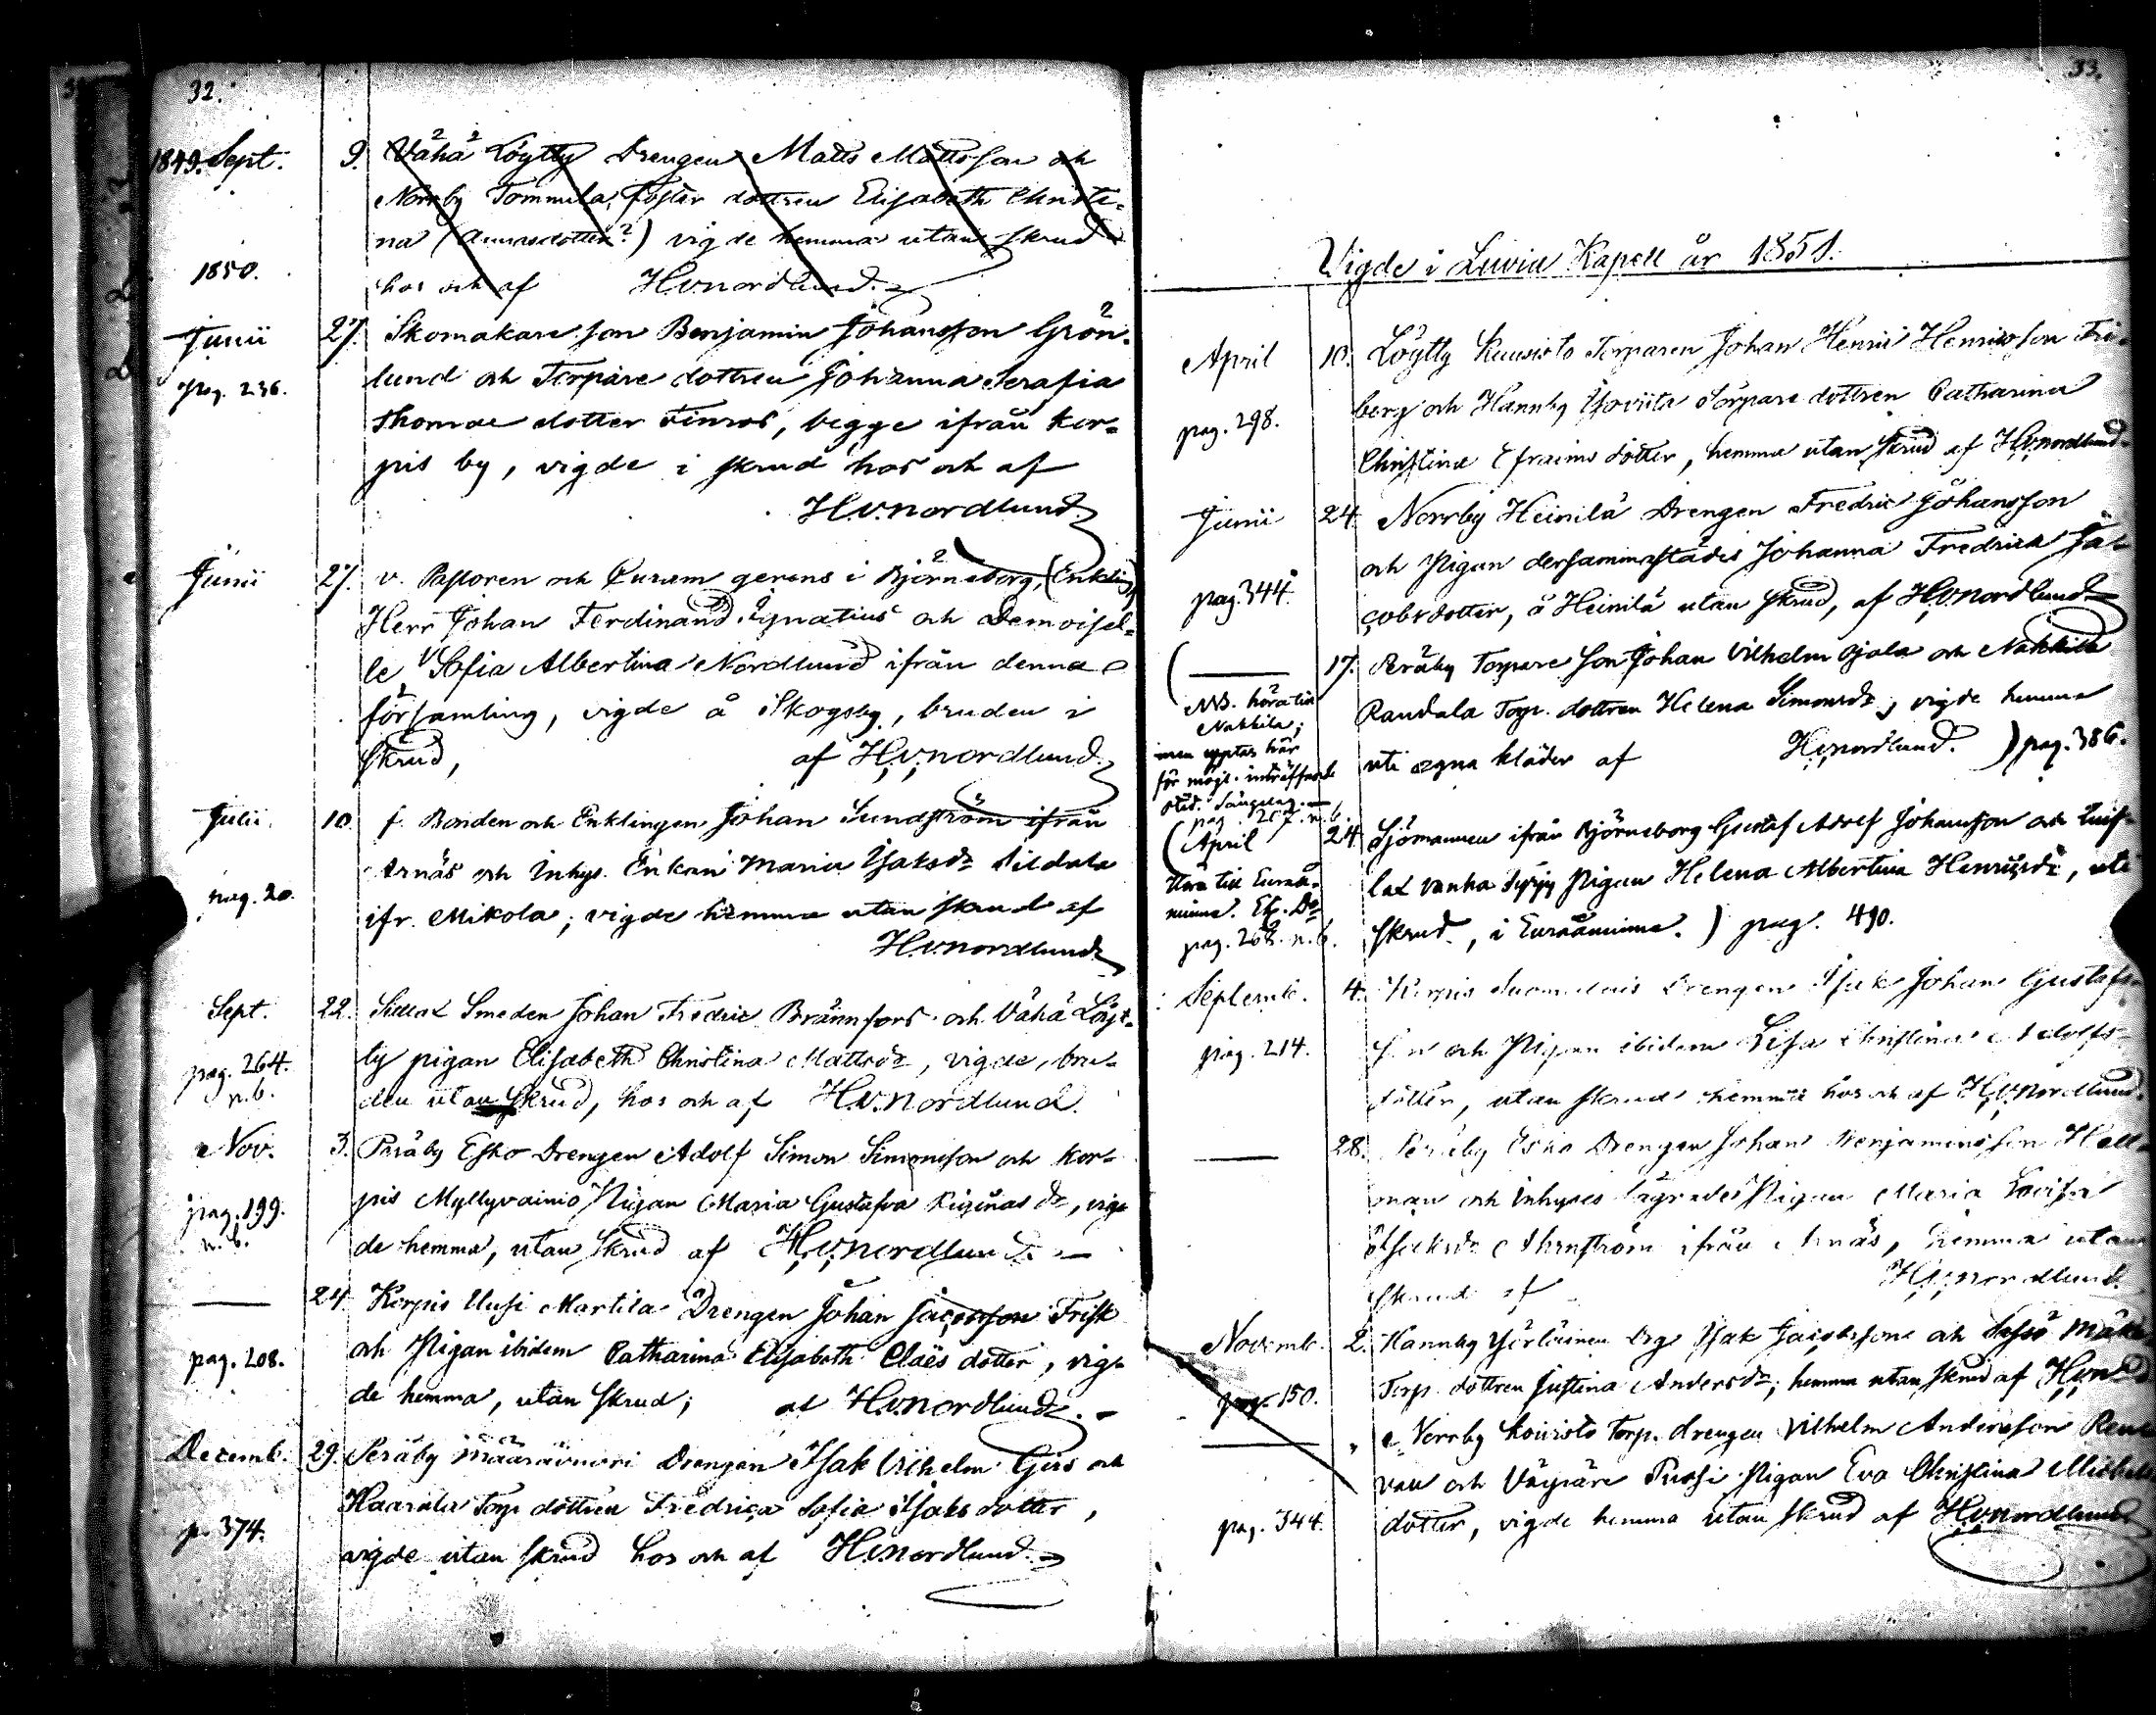 32.
1849. Sept. 9. Vähä Löytty Drengen Matts Mattsson och
Norrby Tommila, foster dottren Elisabeth Christi-
na (Annasdotter?) vigde hemma utan skrud
1850.
hos och af H.v.nordlund.
Junii 27. Skomakare son Benjamin Johansson Grön-
pag. 236.
lund och Torpare dottren Johanna Serafia
Thomae dotter Finros, begge ifrån Kor-
pis by, vigde i skrud hos och af
H.v.nordlund
Junii 27. v. Pastoren och Curam gerens i Björneborg, (Enkling)
Herr Johan Ferdinand Ignatius och Demoisel-
le Sofia Albertina Nordlund ifrån denna
församling, vigde å Skogsby, bruden i
skrud, af H.v.nordlund
Julii 10. f. Bonden och Enklingen Johan Sundström ifrån
Arnäs och Inhys. Enkan Maria Isaksdr
pag. 20.
ifr. Mikola; vigde hemma utan skrud af
H.v.nordlund
Sept. 22. Smeden Johan Fredric Brännfors och Vähä Löyt-
pag. 264. n.b.
ty pigan Elisabeth Christina Mattsdr, vigde, bru-
den utan skrud, hos och af H.v.nordlund.
Nov. 3. Peräby Esko Drengen Adolf Simon Simonsson och Kor-
pag. 199. n.b.
pis Myllyvainio Pigan Maria Gustafva dr, vig-
de hemma, utan skrud af H.v.nordlund.
24 Korpis Uusi Martila Drengen Johan Jacobsson Frisk
pag. 208.
och Pigan ibidem Catharina Elisabeth Claës dotter, vig-
de hemma, utan skrud; af H.v.nordlund.
Decemb. 29. Peräby Drengen Isak Vilhelm och
p. 374.
Torp. dottren Fredrica Sofia Isaks dotter,
vigde utan skrud hos och af H.v.nordlund.
33.
Vigde i Luvia Kapell år 1851.
April 10. Löytty Kuusisto Torparen Johan Henric Henricsson Fri-
pag. 298.
berg och Hannby Torpare dottren Catharina
Christina Efraims dotter, hemma utan skrud af H.v.nordlund
Junii 24. Norrby Heinilä Drengen Fredric Johansson
och Pigan dersammastädes Johanna Fredrica Ja-
pag. 344.
cobsdotter, å Heinilä utan skrud, af H.v.nordlund
( 17. Peräby Torpare son Johan Vilhelm Ojala och Nakkila
NB. höra till
Nakkila;
men upptas här
för mögl. inträffande
Randala Torp. dottren Helena Simonsdr, vigde hemma
uti egna kläder af H.v.nordlund. ) pag. 386.
pag. 267. n.b.
(April 24. Sjömannen ifrån Björneborg Gustaf Adolf Johansson och
Höra till Eura-
minne.
pag. 268. n.b.
Vanha Pigan Helena Albertina Henricsdr, uti
skrud., i Euraåminne. ) pag. 490.
Septemb. 4. Korpis Drengen Isak Johan Gustafs-
pag. 214.
son och Pigan ibidem Lisa Christina Adolfs-
dotter, utan skrud hemma hos och af H.v.nordlund.
28. Peräby Esko Drengen Johan Benjaminsson Hell-
man och Inhyses Pigan Maria Lovisa
Isaksdr Ahrnström ifrån Arnäs, hemma utan
skrud af H.v.nordlund.
Novemb. 2. Hannby Isak Jacobsson och
pag. 150.
Torp. dottren Justina Andersdr, hemma utan skrud af H.v.n
" Norrby Koivisto Torp. drengen Vilhelm Andersson
och Pigan Eva Christina
pag. 344.
dotter, vigde hemma utan skrud af H.v.nordlund